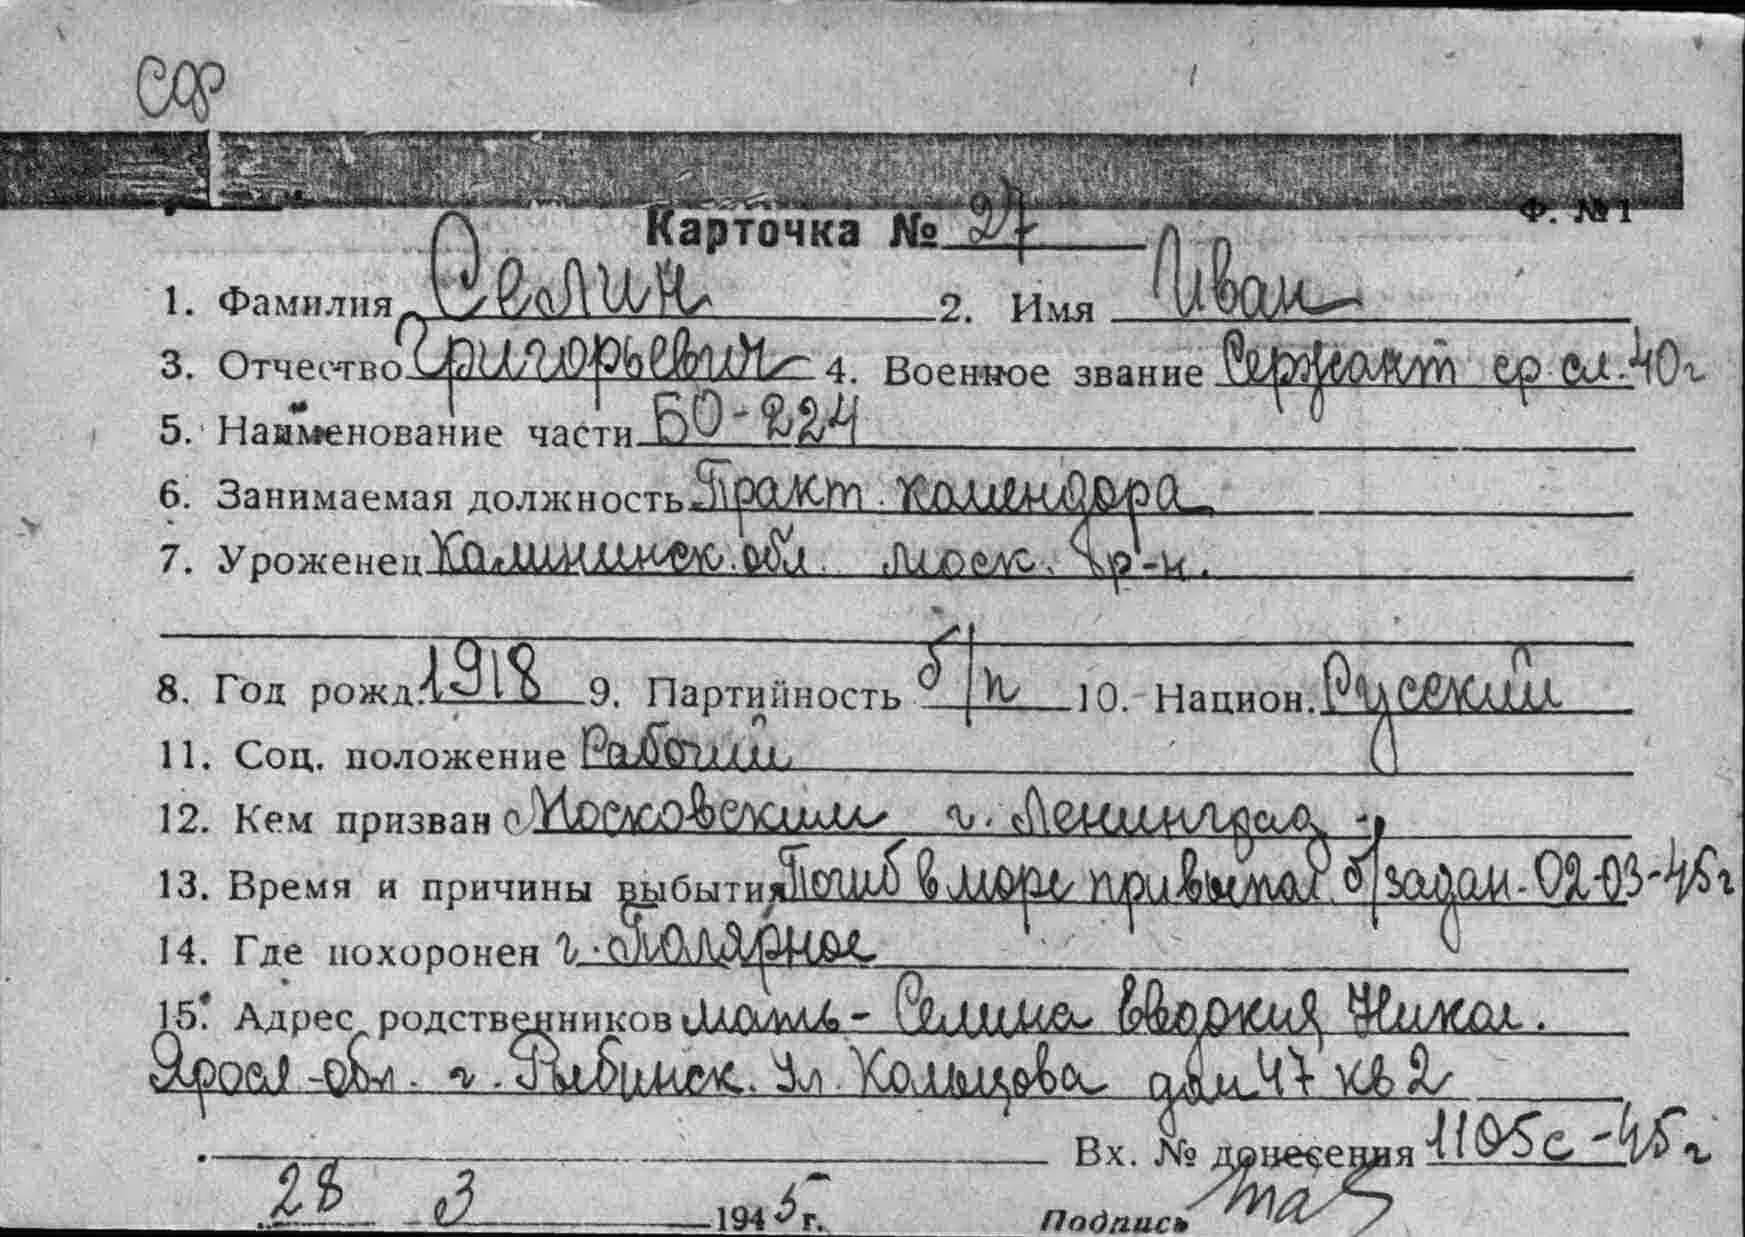 СФ
Карточка № 27
Ф. № 1
1. Фамилия Селин 2. Имя Иван
3. Отчество Григорьевич 4. Военное звание Сержант ср. сл. 40 г
5. Наименование части БО-224
6. Занимаемая должность Практ. комендора
7. Уроженец Калининск. обл. Моск. р-н.
8. Год рожд. 1918 9. Партийность б/п 10. Национ. Русский
11. Соц. положение Рабочий
12. Кем призван Московским г. Ленинград
13. Время и причины выбытия Погиб в море при выпол. б/задан. 02-03-45 г
14. Где похоронен г. Полярное
15. Адрес родственников мать - Селина Евдокия Никол.
Яросл-обл. г. Рыбинск. Ул. Кольцова дом 47 кв 2
Вх. № донесения 1105с-45 г
28 3 1945 г. Подпись